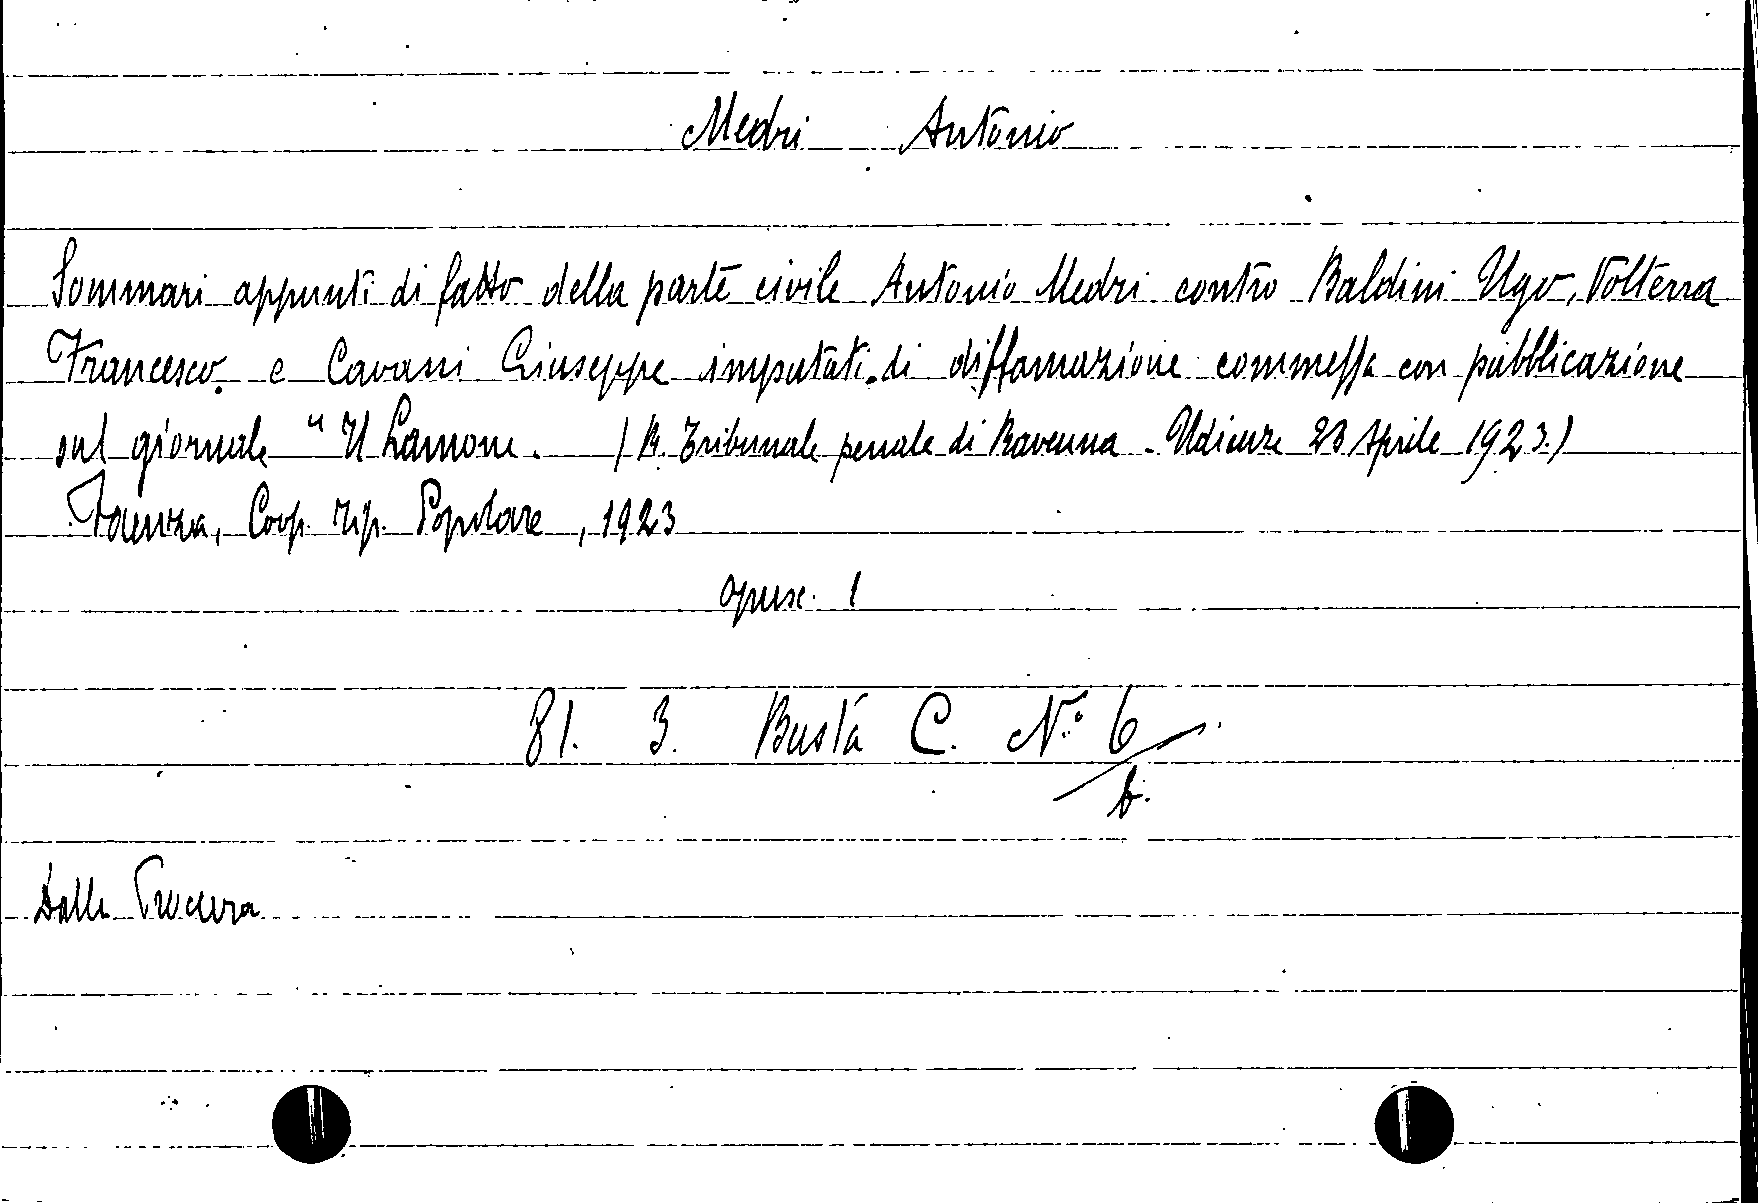 Medri Antonio
Sommari appunti di fatto della parte civile Antonio Medri contro Baldini Ugo, Volterra
Francesco. e Cavani Giuseppe imputati di diffamazione commessa con pubblicazione
sul giornale "Il Lamone. (R. Tribunale penale di Ravenna - Udienze 23 Aprile 1923.)
Faenza, Coop. Tip. Popolare, 1923
opusc. 1
81. 3. Busta C. Nº 6/
b.
Dalla